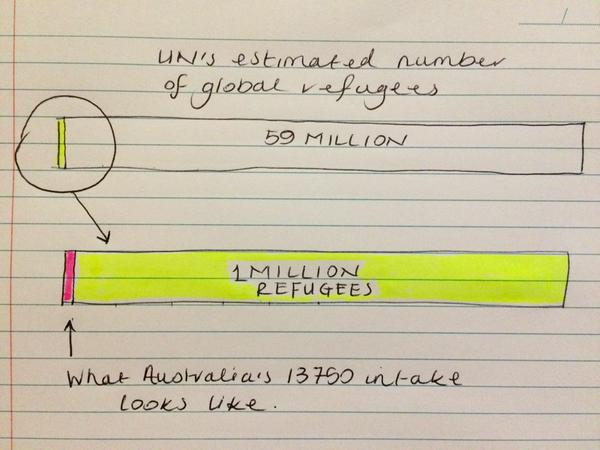 UN's estimated number
of global refugees
59 MILLION
1 MILLION
REFUGEES
What Australia's 13750 intake
looks like.